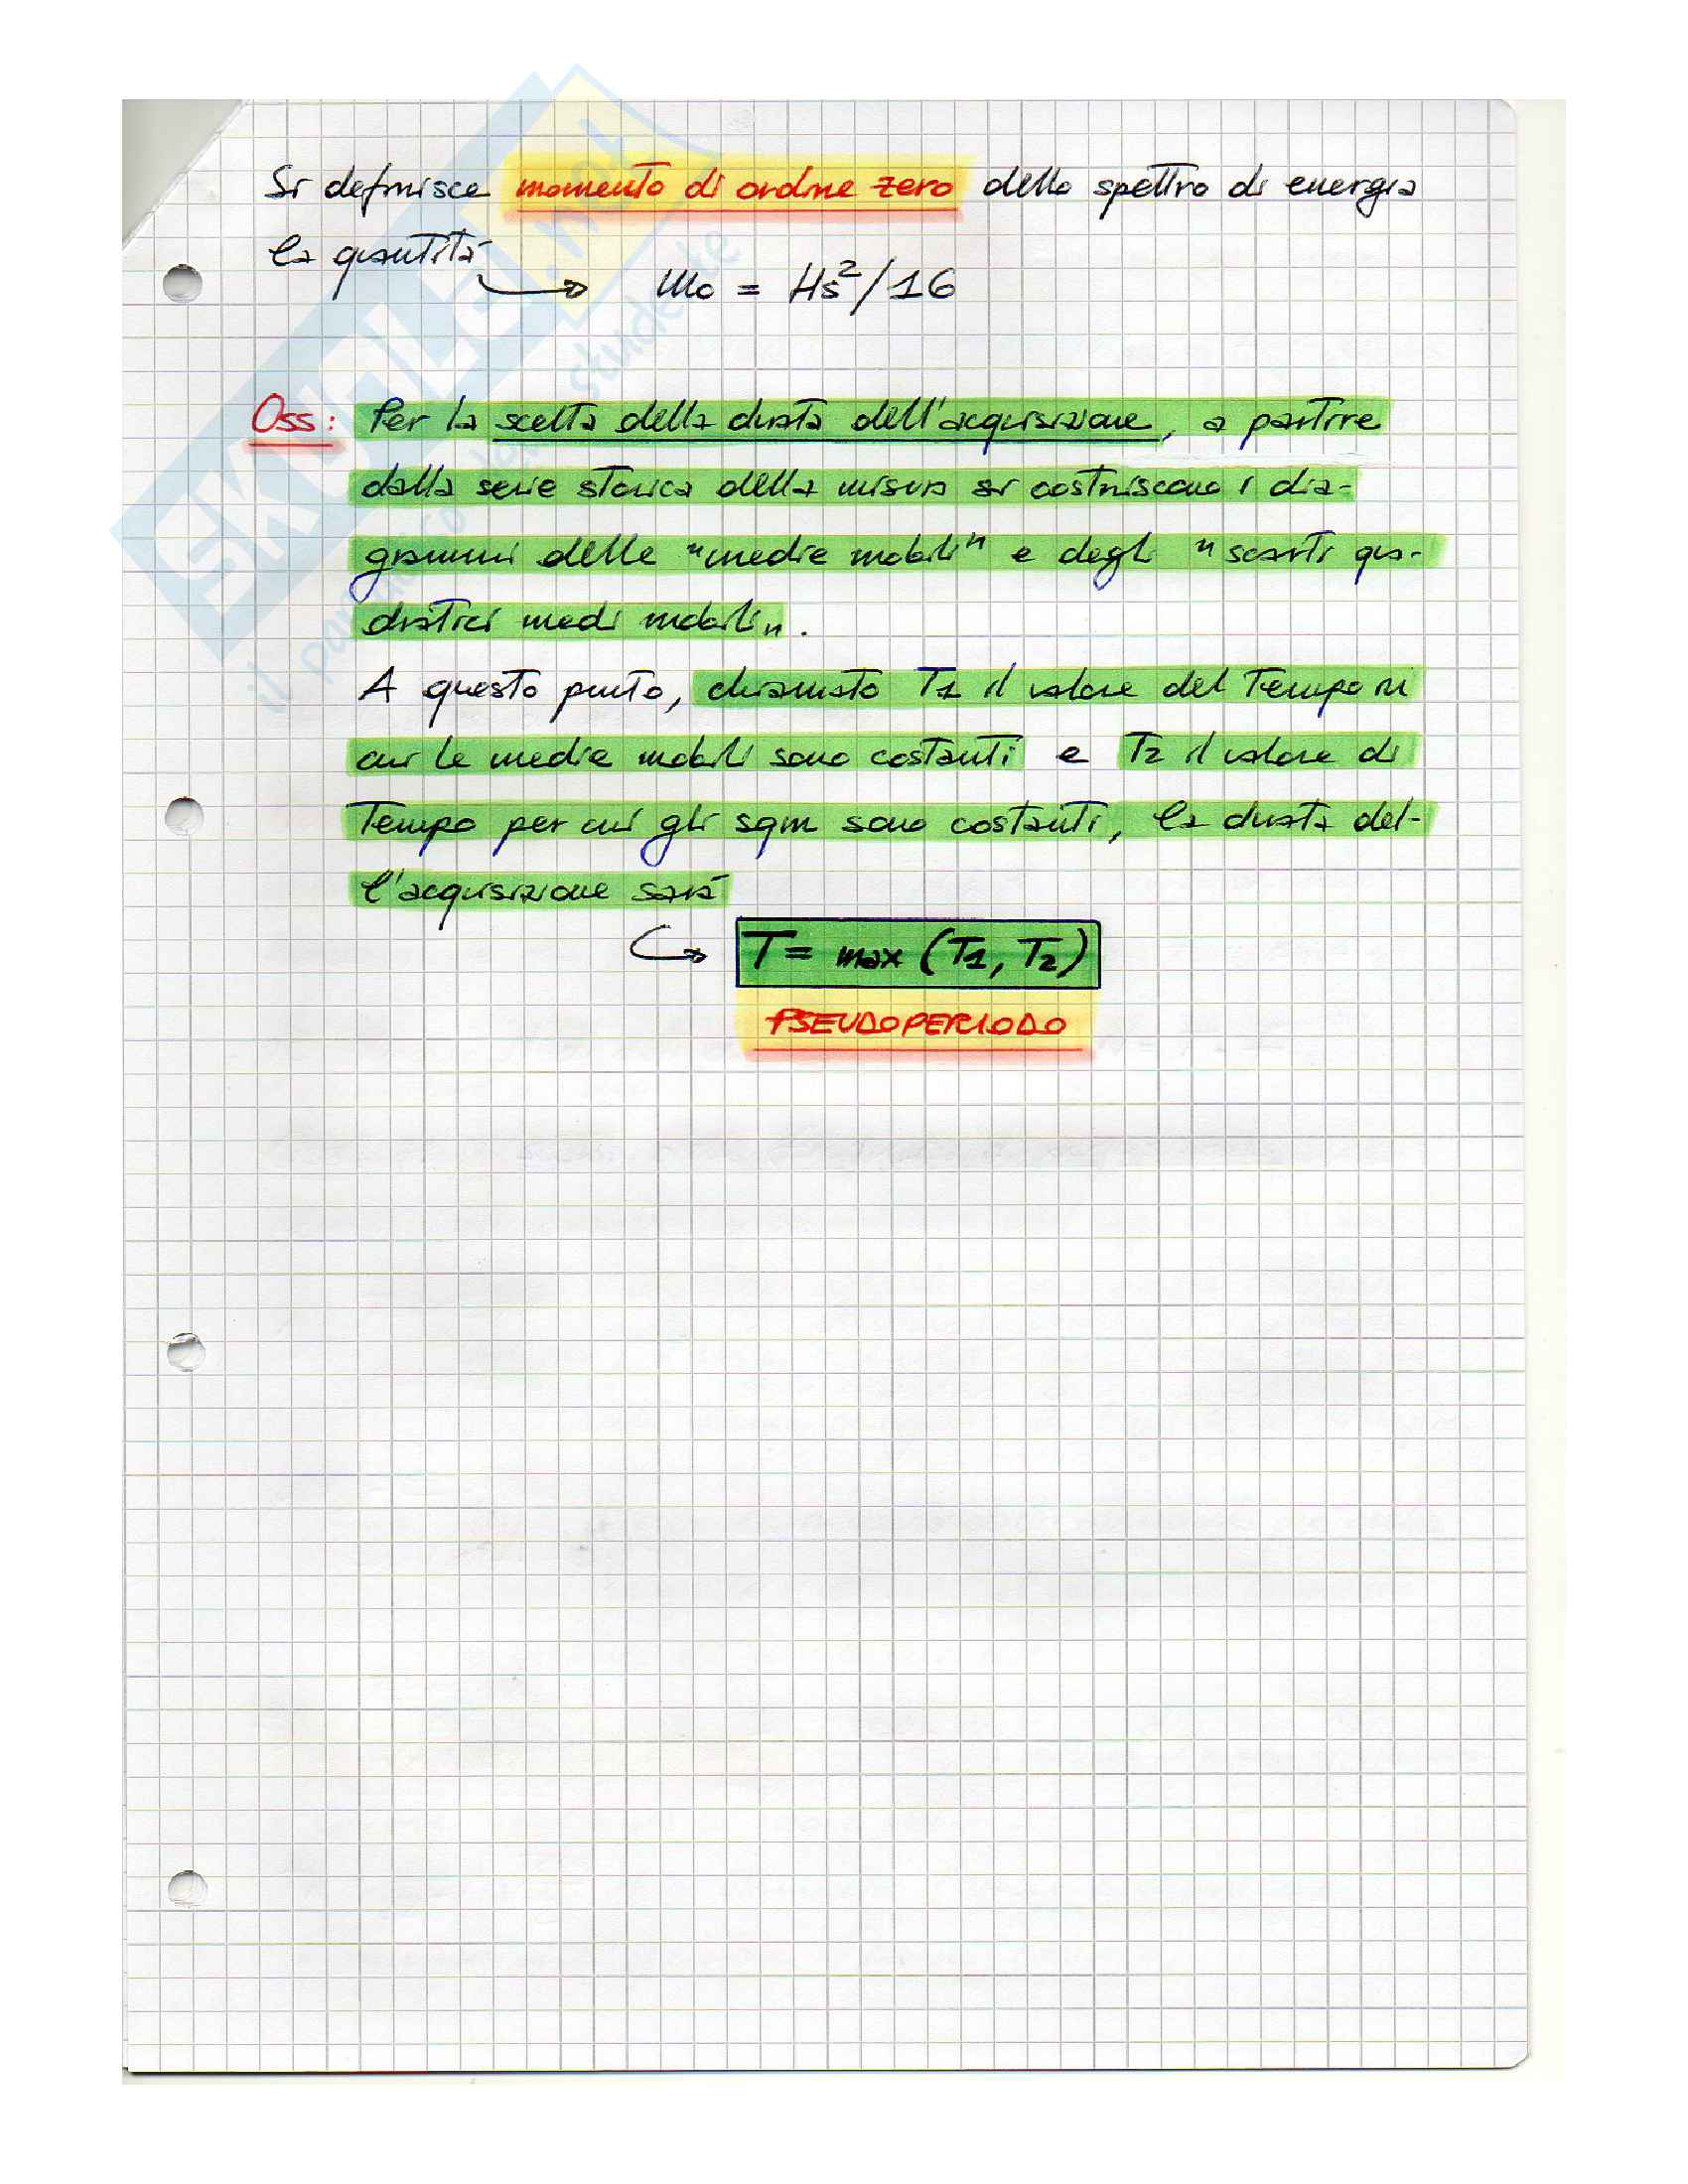 Si definisce momento di ordine zero dello spettro di energia
la quantità → m₀ = Hs²/16
Oss: Per la scelta della durata dell'acquisizione, a partire
dalla serie storica della misura si costruiscono i dia-
grammi delle "medie mobili" e degli "scarti qua-
dratici medi mobili".
A questo punto, chiamato T1 il valore del tempo in
cui le medie mobili sono costanti e T2 il valore di
tempo per cui gli sqm sono costanti, la durata del-
l'acquisizione sarà
↪ T = max (T1, T2)
PSEUDOPERIODO
SKUOLA.net
il paradiso dello studente